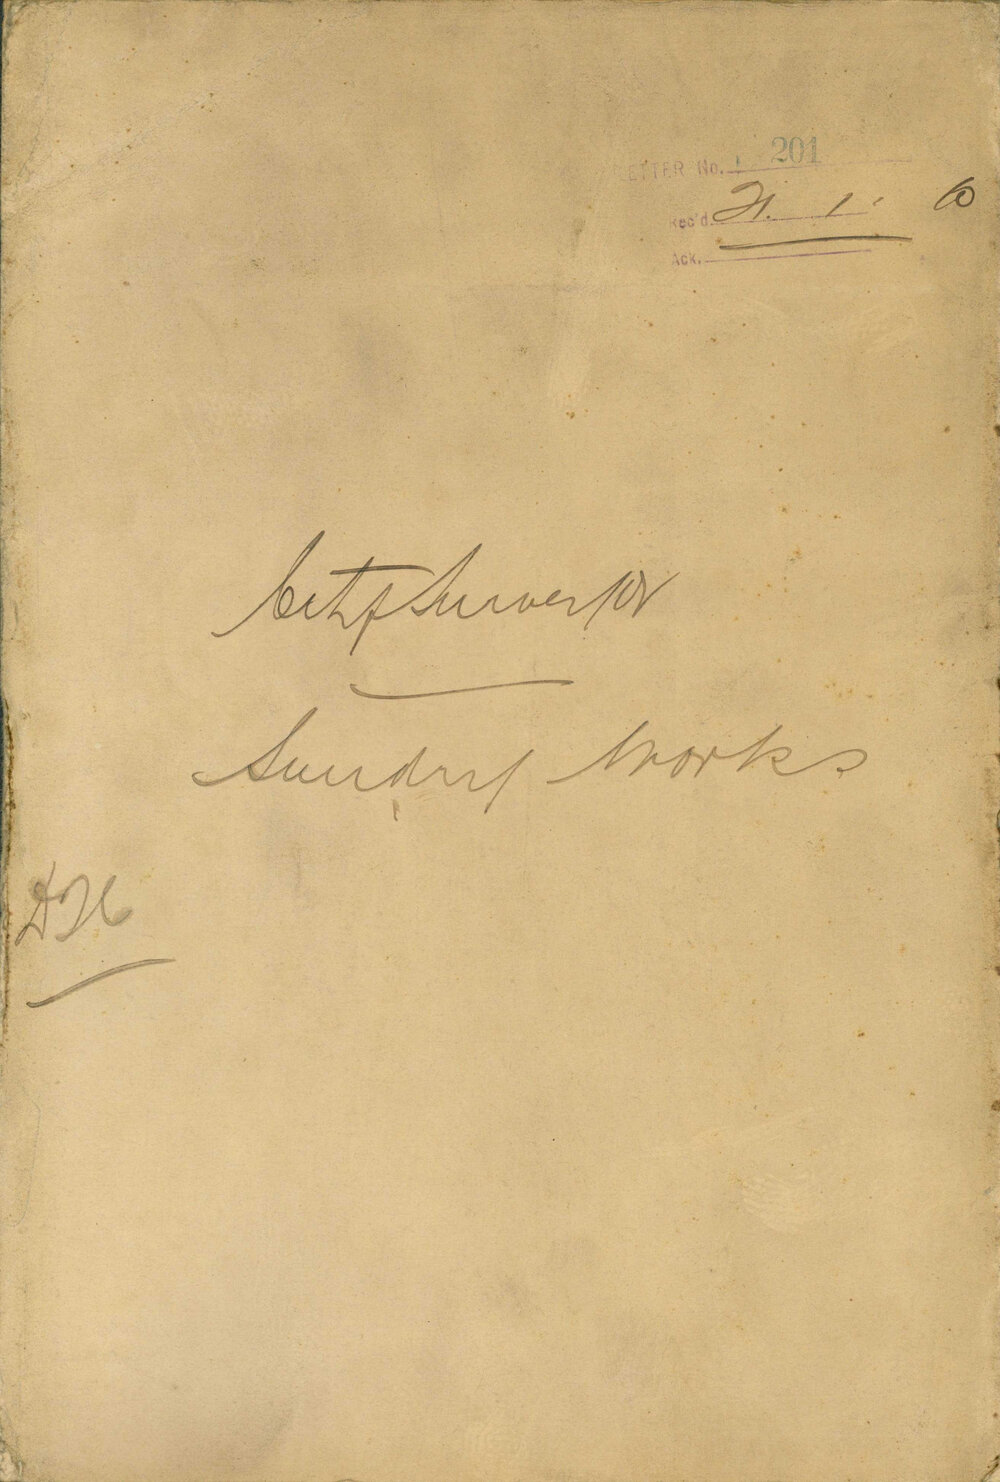 LETTER No. 201
Rec'd 21. 1.
Ack.
City Surveyor
Sundry Works